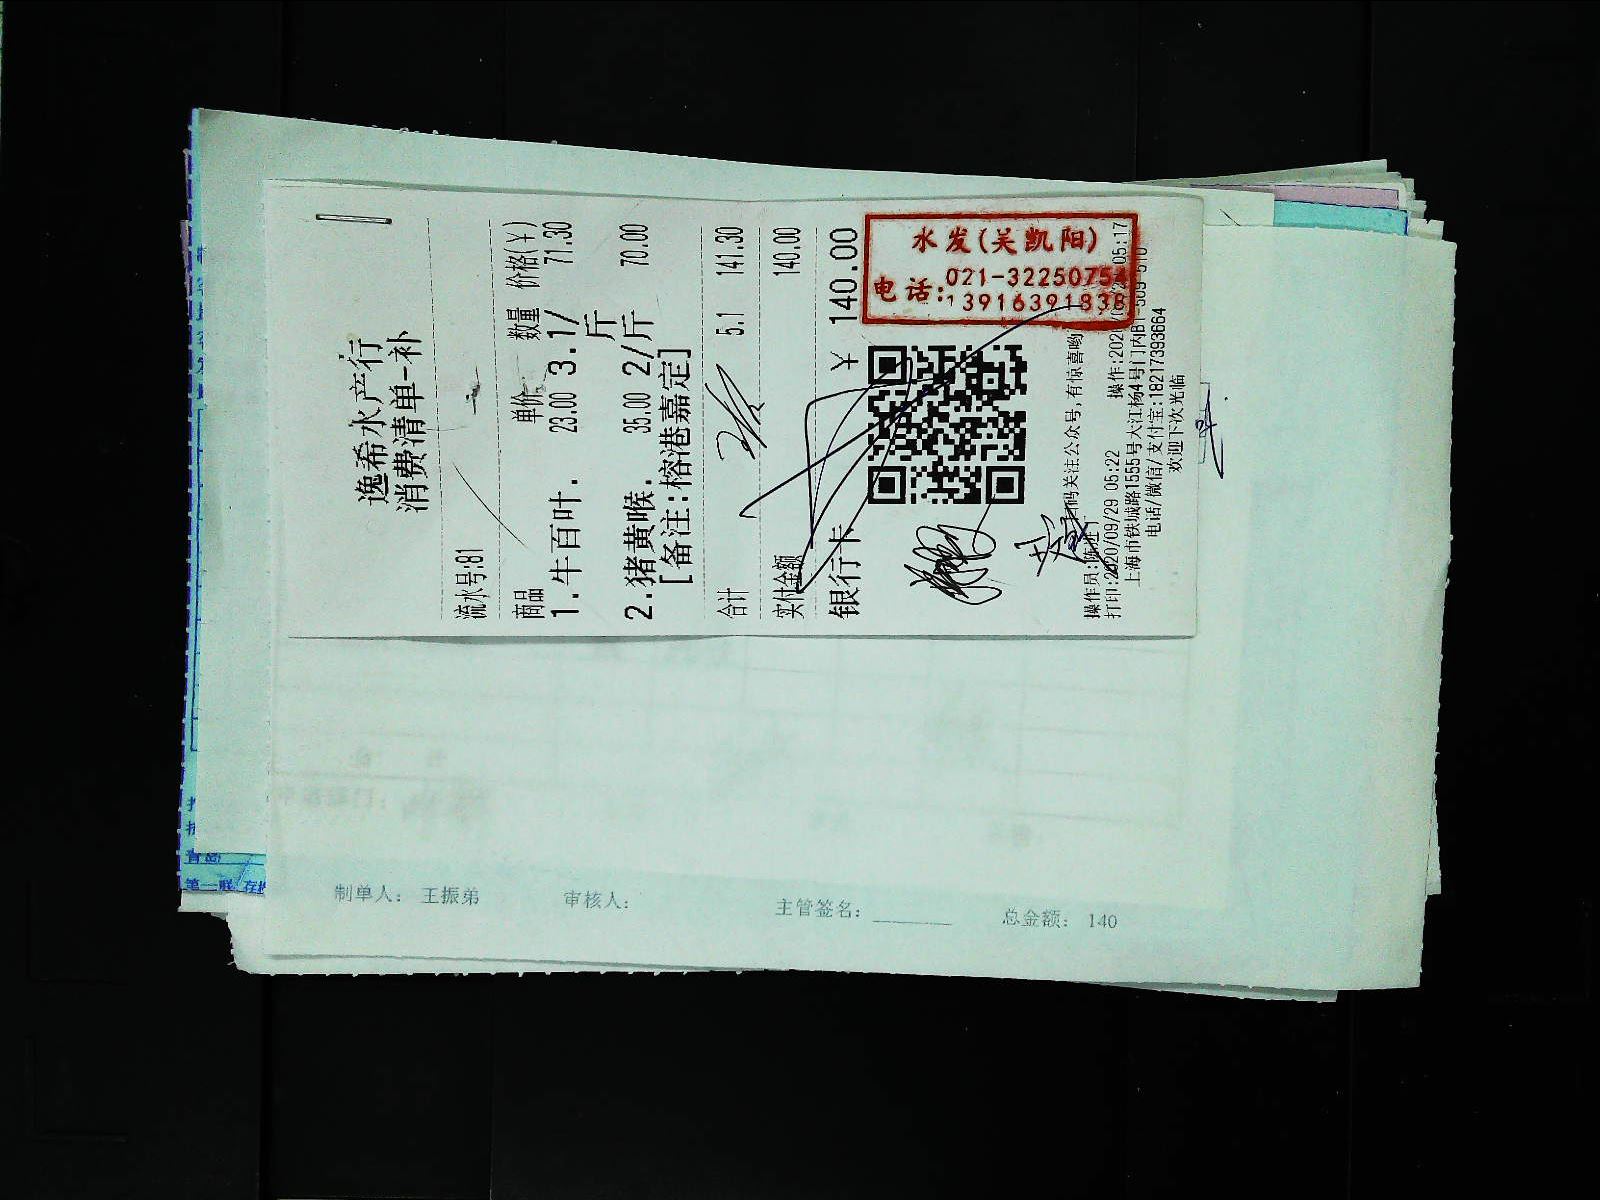 逸希水产行
消费清单-补
流水号:81
商品 单价 数量 价格(¥)
1.牛百叶. 23.00 3.1/斤 71.30
2.猪黄喉. 35.00 2/斤 70.00
[备注:榕港嘉定]
合计 5.1 141.30
实付金额 140.00
银行卡 ¥ 140.00
水发(关凯阳)
电话:021-32250754
13916391838
码关注公众号,有惊喜哟
操作员:陈
打印:2020/09/29 05:22 操作:202 05:17
上海市铁城路1555号大江杨4号门内B1-509-510
电话/微信/支付宝:18217393664
欢迎下次光临
制单人: 王振弟 审核人: 主管签名: 总金额: 140
第一联